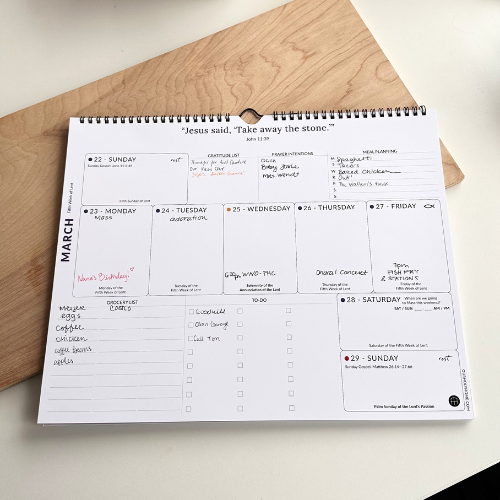 "Jesus said, 'Take away the stone.'"
John 11:39
22 - SUNDAY
rest
Fifth Sunday of Lent
GRATITUDE LIST
PRAYER INTENTIONS
Olan
Baby
Mrs. Wendt
MEAL PLANNING
M Spaghetti
T Tacos
W Baked Chicken
R Out!
F
S
S
MARCH
Fifth Week of Lent
23 - MONDAY
Mass
Nana's Birthday!
Monday of the
Fifth Week of Lent
24 - TUESDAY
adoration
Tuesday of the
Fifth Week of Lent
25 - WEDNESDAY
Solemnity of the
Annunciation of the Lord
26 - THURSDAY
Choral Concert
Thursday of the
Fifth Week of Lent
27 - FRIDAY
7pm
FISH FRY
& STATIONS
Friday of the
Fifth Week of Lent
GROCERY LIST
Meijer
Costco
eggs
coffee
chicken
apples
TO-DO
Goodwill
Clean Garage
Call Tom
28 - SATURDAY
When are we going
to Mass this weekend?
SAT / SUN __:__ AM / PM
Saturday of the Fifth Week of Lent
29 - SUNDAY
rest
Sunday Gospel: Matthew 26:14-27:66
Palm Sunday of the Lord's Passion